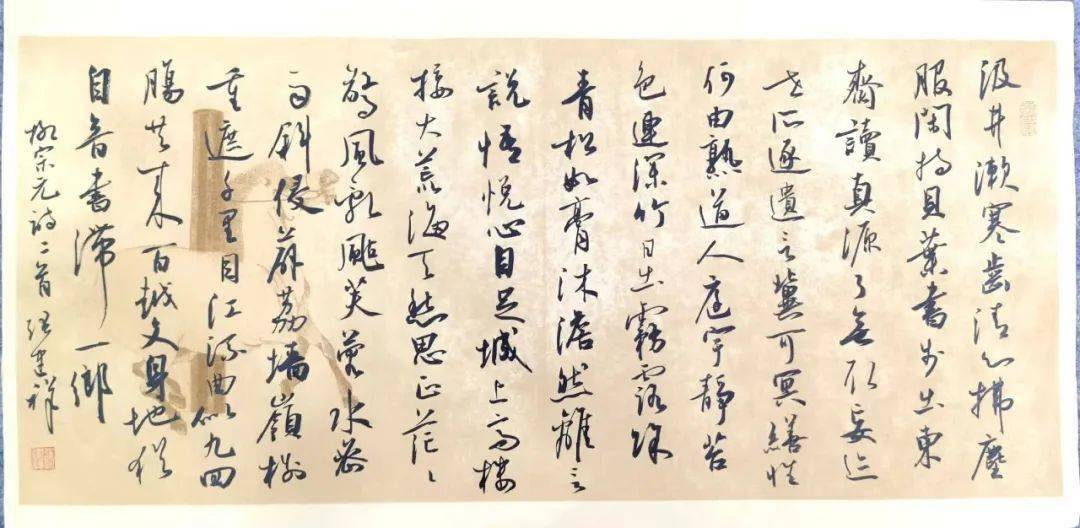 汲井漱寒齒清心拂塵
服閑持貝葉書步出東
齋讀真源了無取妄迹
世所逐遺言冀可冥繕性
何由熟道人庭宇靜苔
色連深竹日出霧露餘
青松如膏沐澹然離言
說悟悅心自足城上高樓
接大荒海天愁思正茫〻
驚風亂颭芙蓉水密
雨斜侵薜荔墻嶺樹
重遮千里目江流曲似九回
腸共來百越文身地猶
自音書滯一鄉
柳宗元詩二首 張建祥